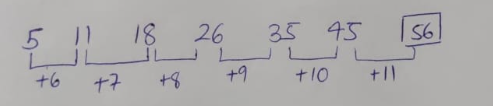 5 11 18 26 35 45 56
+6 +7 +8 +9 +10 +11